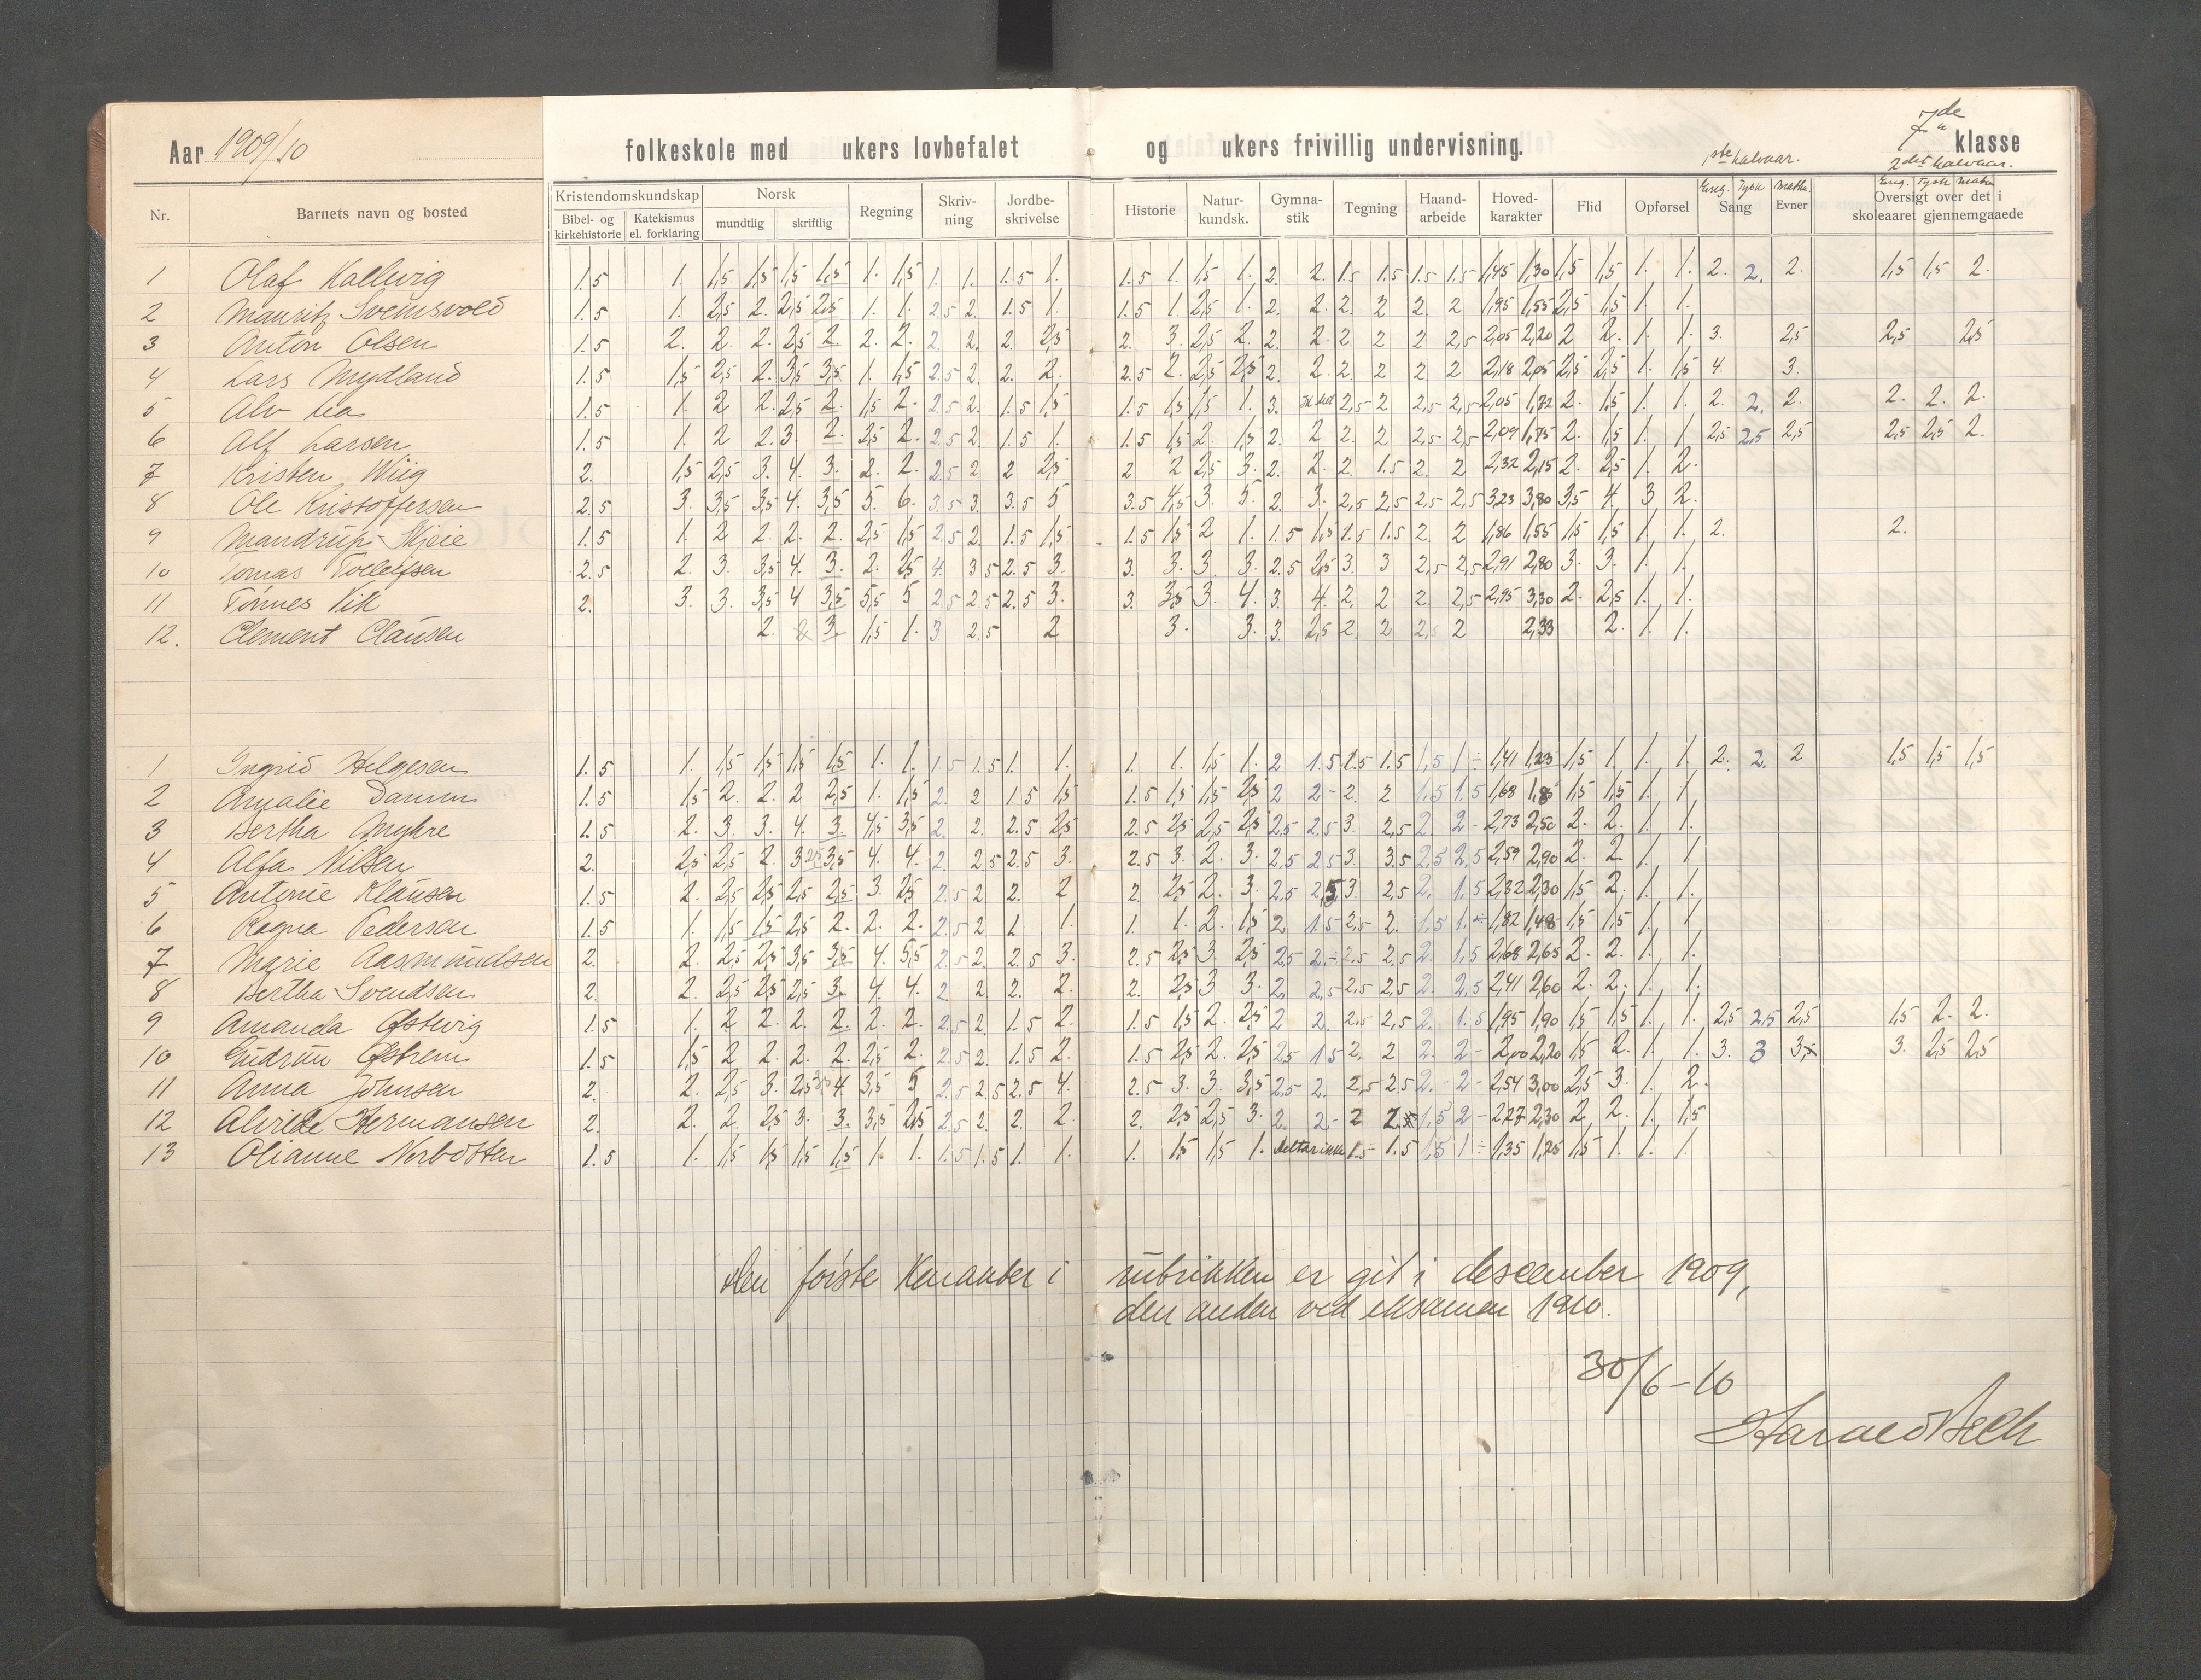 Aar 1909/10 folkeskole med ukers lovbefalet og ukers frivillig undervisning. 7de klasse
1ste halvaar. 2det halvaar.
Nr. Barnets navn og bosted Kristendomskundskap Norsk Regning Skriv-ning Jordbe-skrivelse Historie Natur-kundsk. Gymna-stik Tegning Haand-arbeide Hoved-karakter Flid Opførsel Eng. Tysk Sang Math. Evner Eng. Tysk Math. Oversigt over det i skoleaaret gjennemgaaede
Bibel- og kirkehistorie Katekismus el. forklaring mundtlig skriftlig
1 Olaf Kallevig 1.5 1. 1,5 1,5 1,5 1,5 1. 1,5 1. 1. 1.5 1. 1.5 1. 1,5 1. 2. 2. 1.5 1.5 1.5 1.5 1,45 1,30 1,5 1,5 1. 1. 2. 2. 2. 1,5 1,5 2.
2 Mauritz Svemsvold 1.5 1. 2,5 2. 2,5 2,5 1. 1. 2.5 2. 1.5 1. 1.5 1. 2,5 1. 2. 2. 2. 2 2. 2 1,95 1,55 2,5 1,5 1. 1.
3 Anton Olsen 1.5 2. 2. 2. 2,5 2. 2. 2. 2. 2. 2. 2,5 2. 3. 2,5 2. 2. 2. 2. 2 2 2,5 2,05 2,20 2 2. 1. 1. 3. 2,5 2,5 2,5
4 Lars Mydland 1.5 1,5 2,5 2. 3,5 3,5 1. 1,5 2.5 2. 2. 2. 2.5 2. 2,5 2,5 2. 2. 2. 2 2 2 2,18 2,05 2,5 2,5 1. 1,5 4. 3.
5 Alv Lea 1.5 1. 2 2. 2,5 2. 1,5 2. 2.5 2. 1.5 1,5 1.5 1,5 1,5 1. 3. 2,5 2 2,5 2,5 2,05 1,72 2. 1,5 1. 1. 2. 2. 2. 2. 2. 2.
6 Alf Larsen 1.5 1. 2 2. 3. 2. 2,5 2. 2.5 2. 1.5 1. 1.5 1,5 2 1,5 2. 2 2. 2 2,5 2,5 2,09 1,75 2. 1,5 1. 1 2,5 2,5 2,5 2,5 2,5 2.
7 Kristen Wiig 2. 1,5 2,5 3. 4. 3. 2. 2. 2.5 2 2 2,5 2 2 2,5 3. 2. 2. 2. 1.5 2. 2 2,32 2,15 2. 2,5 1. 2.
8 Ole Kristoffersen 2.5 3. 3,5 3,5 4. 3,5 5. 6. 3.5 3. 3.5 5 3.5 4,5 3. 5. 2. 3. 2,5 2,5 2,5 2,5 3,23 3,80 3,5 4. 3 2.
9 Mandrup Skjeie 1.5 1. 2 2. 2. 2. 2,5 1,5 2.5 2. 1.5 1,5 1.5 1,5 2 1. 1.5 1,5 1.5 1.5 2. 2 1,86 1,55 1,5 1,5 1. 1. 2. 2.
10 Tomas Tolleifsen 2.5 2. 3. 3,5 4. 3. 2. 2,5 4. 3 5 2.5 3. 3. 3. 3. 3. 2.5 2,5 3. 3 2,5 2,5 2,91 2,80 3. 3. 1. 1.
11 Tønnes Vik 2. 3. 3. 3,5 4 3,5 5,5 5 2.5 2 5 2.5 3. 3. 3,5 3. 4. 3. 4. 2. 2 2. 2,5 2,95 3,30 2. 2,5 1. 1.
12. Clement Clausen 2. 3. 1,5 1. 3. 2.5 2 3. 3. 3. 2,5 2. 2 2,5 2 2,33 2. 1. 1.
1 Ingrid Helgesen 1.5 1. 1,5 1,5 1,5 1,5 1. 1. 1.5 1.5 1. 1. 1. 1. 1,5 1. 2 1.5 1.5 1.5 1,5 1 1,41 1,23 1,5 1. 1. 1. 2. 2. 2 1,5 1,5 1,5
2 Amalie Damm 1.5 1,5 2. 2. 2 2,5 1. 1,5 2. 2 1.5 1,5 1.5 1,5 1,5 2,5 2 2 2. 2 1.5 1.5 1,68 1,85 1,5 1,5 1. 1
3 Bertha Myhre 1.5 2. 3. 3. 4. 3. 4,5 3,5 2. 2. 2.5 2,5 2.5 2,5 2,5 2,5 2,5 2.5 3. 2,5 2. 2 2,73 2,50 2. 2. 1. 1.
4 Alfa Nilsen 2. 2,5 2,5 2. 3 3,5 4. 4. 2. 2.5 2.5 3. 2.5 3. 2. 3. 2.5 2.5 3. 3.5 2,5 2.5 2,59 2,90 2. 2 1. 1
5 Antonie Klausen 1.5 2. 2,5 2,5 2,5 2,5 3. 2,5 2.5 2 2. 2 2. 2,5 2. 3. 2,5 2,5 3. 2,5 2. 1.5 2,32 2,30 1,5 2. 1. 1.
6 Ragna Pedersen 1.5 1. 1,5 1,5 2,5 2. 2. 2. 2.5 2 1 1. 1. 1. 2. 1,5 2. 1.5 2,5 2. 1,5 1. 1,82 1,48 1,5 1,5 1. 1
7 Marie Aasmundsen 2. 2. 2,5 2,5 3,5 3,5 4. 5,5 2.5 2. 2.5 3. 2.5 2,5 3. 2,5 2,5 2. 2.5 2.5 2. 1,5 2,68 2,65 2. 2. 1. 1.
8 Bertha Svendsen 2. 2. 2,5 2,5 2,5 3. 4. 4. 2. 2. 2. 2. 2. 2,5 3. 3. 2. 2,5 2,5 2,5 2. 2,5 2,41 2,60 2. 2. 1. 1.
9 Amanda Østevig 1.5 1. 2 2. 2. 2. 2. 2. 2.5 2. 1.5 2. 1.5 1,5 2. 2,5 2. 2. 2,5 2,5 2. 1.5 1,95 1,90 1,5 1,5 1. 1. 2,5 2,5 2,5 1,5 2. 2.
10 Gudrun Østrem 1.5 1,5 2 2. 2. 2. 2,5 2. 2.5 2. 1.5 2. 1.5 2,5 2. 2,5 2,5 1.5 2. 2 2. 2 2,00 2,20 1,5 2. 1. 1. 3. 3 3. 2,5 2,5
11 Anna Johnsen 2. 2. 2,5 3. 2,5 4. 3,5 5 2.5 2.5 2.5 4. 2.5 3. 3. 3,5 2,5 2. 2,5 2.5 2. 2 2,54 3,00 2,5 3. 1. 2.
12 Alvilde Hermansen 2. 2. 2. 2,5 3. 3. 3,5 2,5 2.5 2. 2. 2. 2. 2,5 2,5 3. 2. 2. 2 1,5 2 2,27 2,30 2. 2. 1. 1,5
13 Olianne 1.5 1. 1,5 1,5 1,5 1,5 1. 1. 1.5 1.5 1. 1. 1. 1,5 1,5 1. deltar ikke 1.5 1.5 1,5 1 1,35 1,25 1,5 1. 1. 1.
Den første karakter i rubrikken er git i desember 1909,
den anden ved eksamen 1910.
30/6-10
Harald Bech